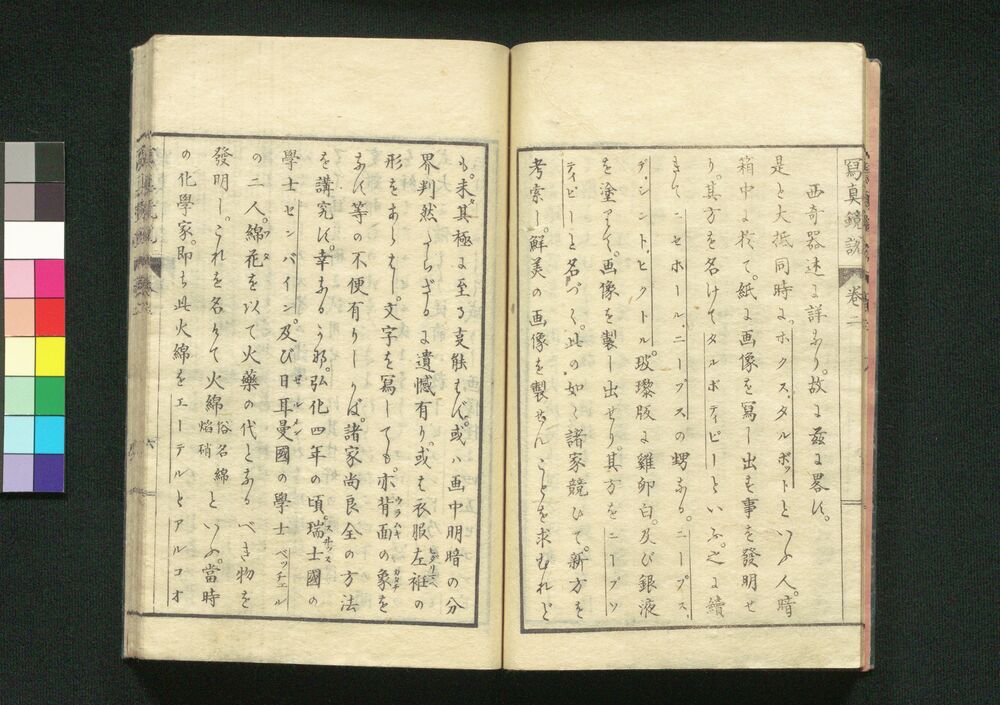 寫真鏡説 巻二
西奇器述に詳なり。故に茲に畧す。
是と大抵同時に。ホクス。タルボットといふ人。暗
箱中に於て。紙に画像を寫し出す事を發明せ
り。其方を名けてタルボティピーといふ。之に續
きてニセホール。ニープスの甥なる。ニープス。
デ。シント。ヒクトル。玻瓈版に雞卵白。及び銀液
を塗りて。画像を製し出せり。其方をニープソ
ティピーと名づく。此の如く諸家競ひて。新方を
考索し。鮮美の画像を製せんことを求むれど
も。未其極に至る事能はず。或ハ画中明暗の分
界判然たらざるに遺憾有り。或は衣服左袵の
形をあらはし。文字を寫しても。亦背面の象を
なす等の不便有りしかば。諸家尚良全の方法
を講究す。幸なるかな。弘化四年の頃。瑞士國の
學士センバイン。及び日耳曼國の學士ベッチェル
の二人。綿花を以て火藥の代となるべき物を
發明し。これを名けて火綿俗名綿焔硝といふ。當時
の化學家。即ち此火綿をエーテルとアルコオ